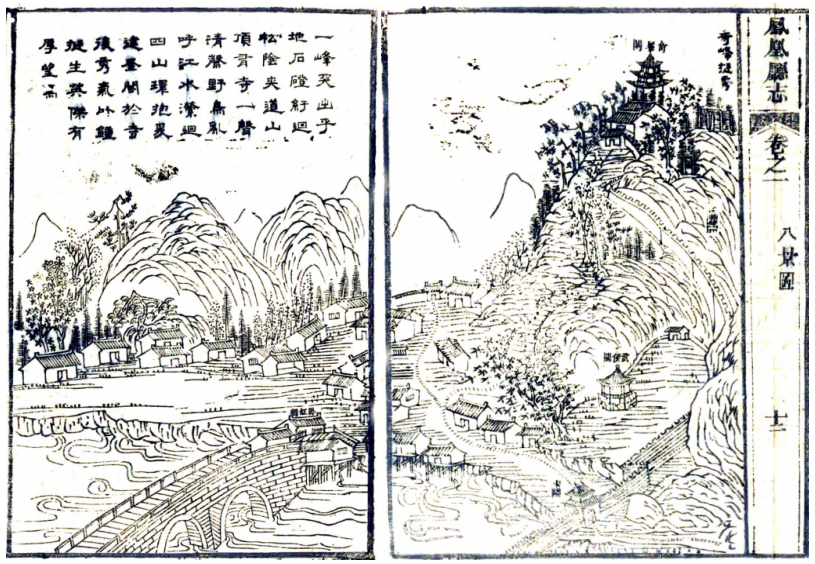 鳳凰廳志
卷之一
八景圖
十二
奇峰挺秀
武侯閣
一峰突出平
地石磴紆迴
松陰夾道山
頂有寺一聲
清磬野鳥亂
呼江水瀠迴
四山環抱爰
建臺閣於寺
後秀氣鍾
挺生英傑有
厚望焉